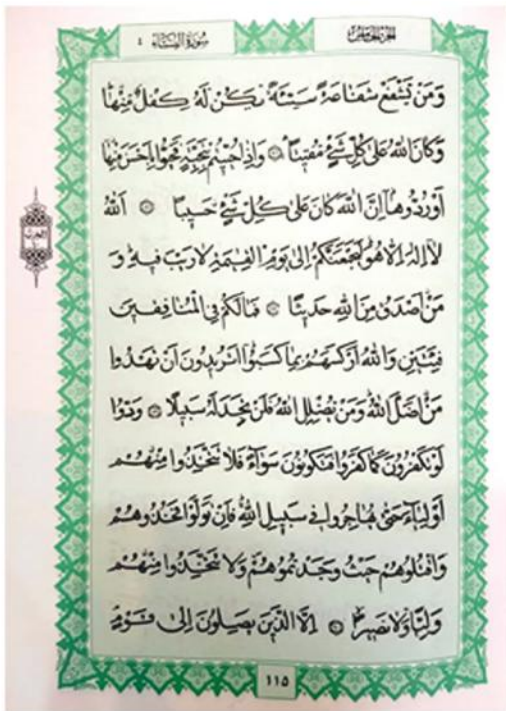 الجزء الخامس سورة النساء ٤
وَمَنْ يَشْفَعْ شَفَاعَةً سَيِّئَةً يَكُنْ لَهُ كِفْلٌ مِنْهَا
وَكَانَ اللهُ عَلىٰ كُلِّ شَيْءٍ مُقِيتًا وَاِذَا حُيِّيتُمْ بِتَحِيَّةٍ فَحَيُّوا بِاَحْسَنَ مِنْهَا
اَوْ رُدُّوهَا اِنَّ اللهَ كَانَ عَلىٰ كُلِّ شَيْءٍ حَسِيبًا اَللهُ
لَا اِلٰهَ اِلَّا هُوَ لَيَجْمَعَنَّكُمْ اِلىٰ يَوْمِ الْقِيٰمَةِ لَا رَيْبَ فِيهِ وَ
مَنْ اَصْدَقُ مِنَ اللهِ حَدِيثًا فَمَا لَكُمْ فِي الْمُنَافِقِينَ
فِئَتَيْنِ وَاللهُ اَرْكَسَهُمْ بِمَا كَسَبُوا اَتُرِيدُونَ اَنْ تَهْدُوا
مَنْ اَضَلَّ اللهُ وَمَنْ يُضْلِلِ اللهُ فَلَنْ تَجِدَ لَهُ سَبِيلًا وَدُّوا
لَوْ تَكْفُرُونَ كَمَا كَفَرُوا فَتَكُونُونَ سَوَاءً فَلَا تَتَّخِذُوا مِنْهُمْ
اَوْلِيَاءَ حَتّىٰ يُهَاجِرُوا فِي سَبِيلِ اللهِ فَاِنْ تَوَلَّوْا فَخُذُوهُمْ
وَاقْتُلُوهُمْ حَيْثُ وَجَدْتُمُوهُمْ وَلَا تَتَّخِذُوا مِنْهُمْ
وَلِيًّا وَلَا نَصِيرًا اِلَّا الَّذِينَ يَصِلُونَ اِلىٰ قَوْمٍ
١١٥